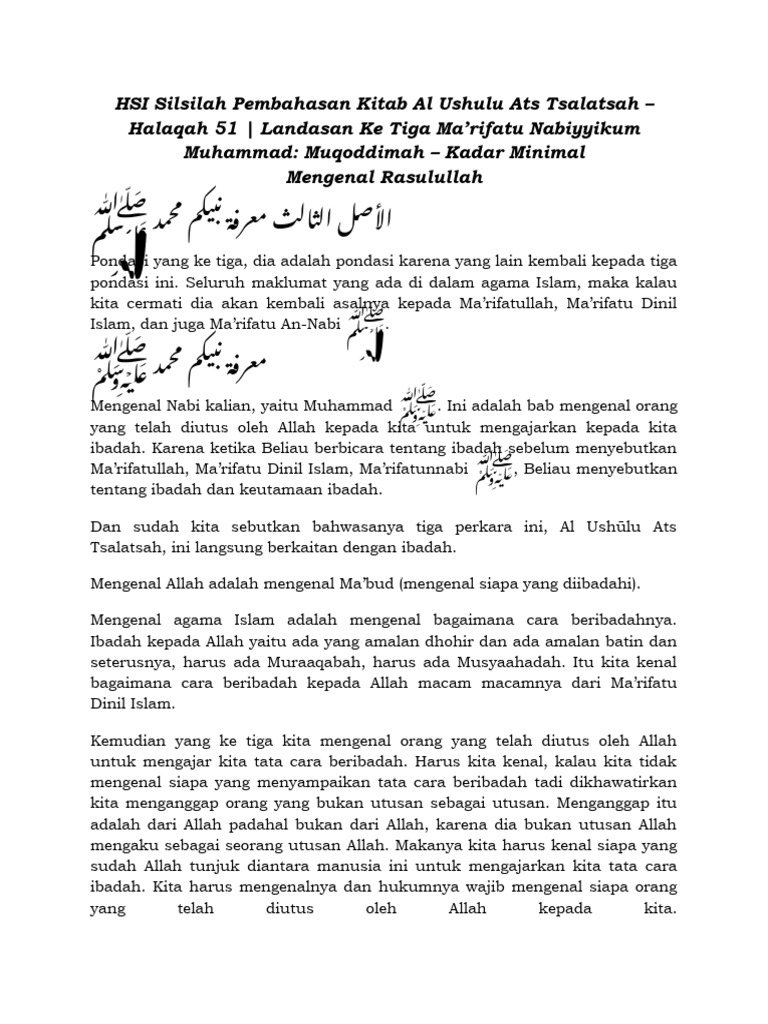 HSI Silsilah Pembahasan Kitab Al Ushulu Ats Tsalatsah –
Halaqah 51 | Landasan Ke Tiga Ma’rifatu Nabiyyikum
Muhammad: Muqoddimah – Kadar Minimal
Mengenal Rasulullah
الأصل الثالث معرفة نبيكم محمد ﷺ
Pondasi yang ke tiga, dia adalah pondasi karena yang lain kembali kepada tiga
pondasi ini. Seluruh maklumat yang ada di dalam agama Islam, maka kalau
kita cermati dia akan kembali asalnya kepada Ma’rifatullah, Ma’rifatu Dinil
Islam, dan juga Ma’rifatu An-Nabi ﷺ.
معرفة نبيكم محمد ﷺ
Mengenal Nabi kalian, yaitu Muhammad ﷺ. Ini adalah bab mengenal orang
yang telah diutus oleh Allah kepada kita untuk mengajarkan kepada kita
ibadah. Karena ketika Beliau berbicara tentang ibadah sebelum menyebutkan
Ma’rifatullah, Ma’rifatu Dinil Islam, Ma’rifatunnabi ﷺ, Beliau menyebutkan
tentang ibadah dan keutamaan ibadah.
Dan sudah kita sebutkan bahwasanya tiga perkara ini, Al Ushūlu Ats
Tsalatsah, ini langsung berkaitan dengan ibadah.
Mengenal Allah adalah mengenal Ma’bud (mengenal siapa yang diibadahi).
Mengenal agama Islam adalah mengenal bagaimana cara beribadahnya.
Ibadah kepada Allah yaitu ada yang amalan dhohir dan ada amalan batin dan
seterusnya, harus ada Muraaqabah, harus ada Musyaahadah. Itu kita kenal
bagaimana cara beribadah kepada Allah macam macamnya dari Ma’rifatu
Dinil Islam.
Kemudian yang ke tiga kita mengenal orang yang telah diutus oleh Allah
untuk mengajar kita tata cara beribadah. Harus kita kenal, kalau kita tidak
mengenal siapa yang menyampaikan tata cara beribadah tadi dikhawatirkan
kita menganggap orang yang bukan utusan sebagai utusan. Menganggap itu
adalah dari Allah padahal bukan dari Allah, karena dia bukan utusan Allah
mengaku sebagai seorang utusan Allah. Makanya kita harus kenal siapa yang
sudah Allah tunjuk diantara manusia ini untuk mengajarkan kita tata cara
ibadah. Kita harus mengenalnya dan hukumnya wajib mengenal siapa orang
yang telah diutus oleh Allah kepada kita.